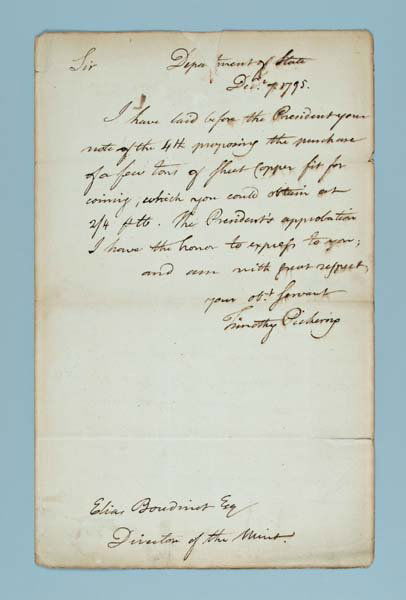 Sir Department of State
Decr. 7. 1795.
I have laid before the President your
note of the 4th proposing the purchase
of a few tons of sheet Copper fit for
coining, which you could obtain at
2/4 ⅌ lb. The President's approbation
I have the honor to express to you;
and am with great respect,
your obt. servant
Timothy Pickering
Elias Boudinot Esq
Director of the Mint.